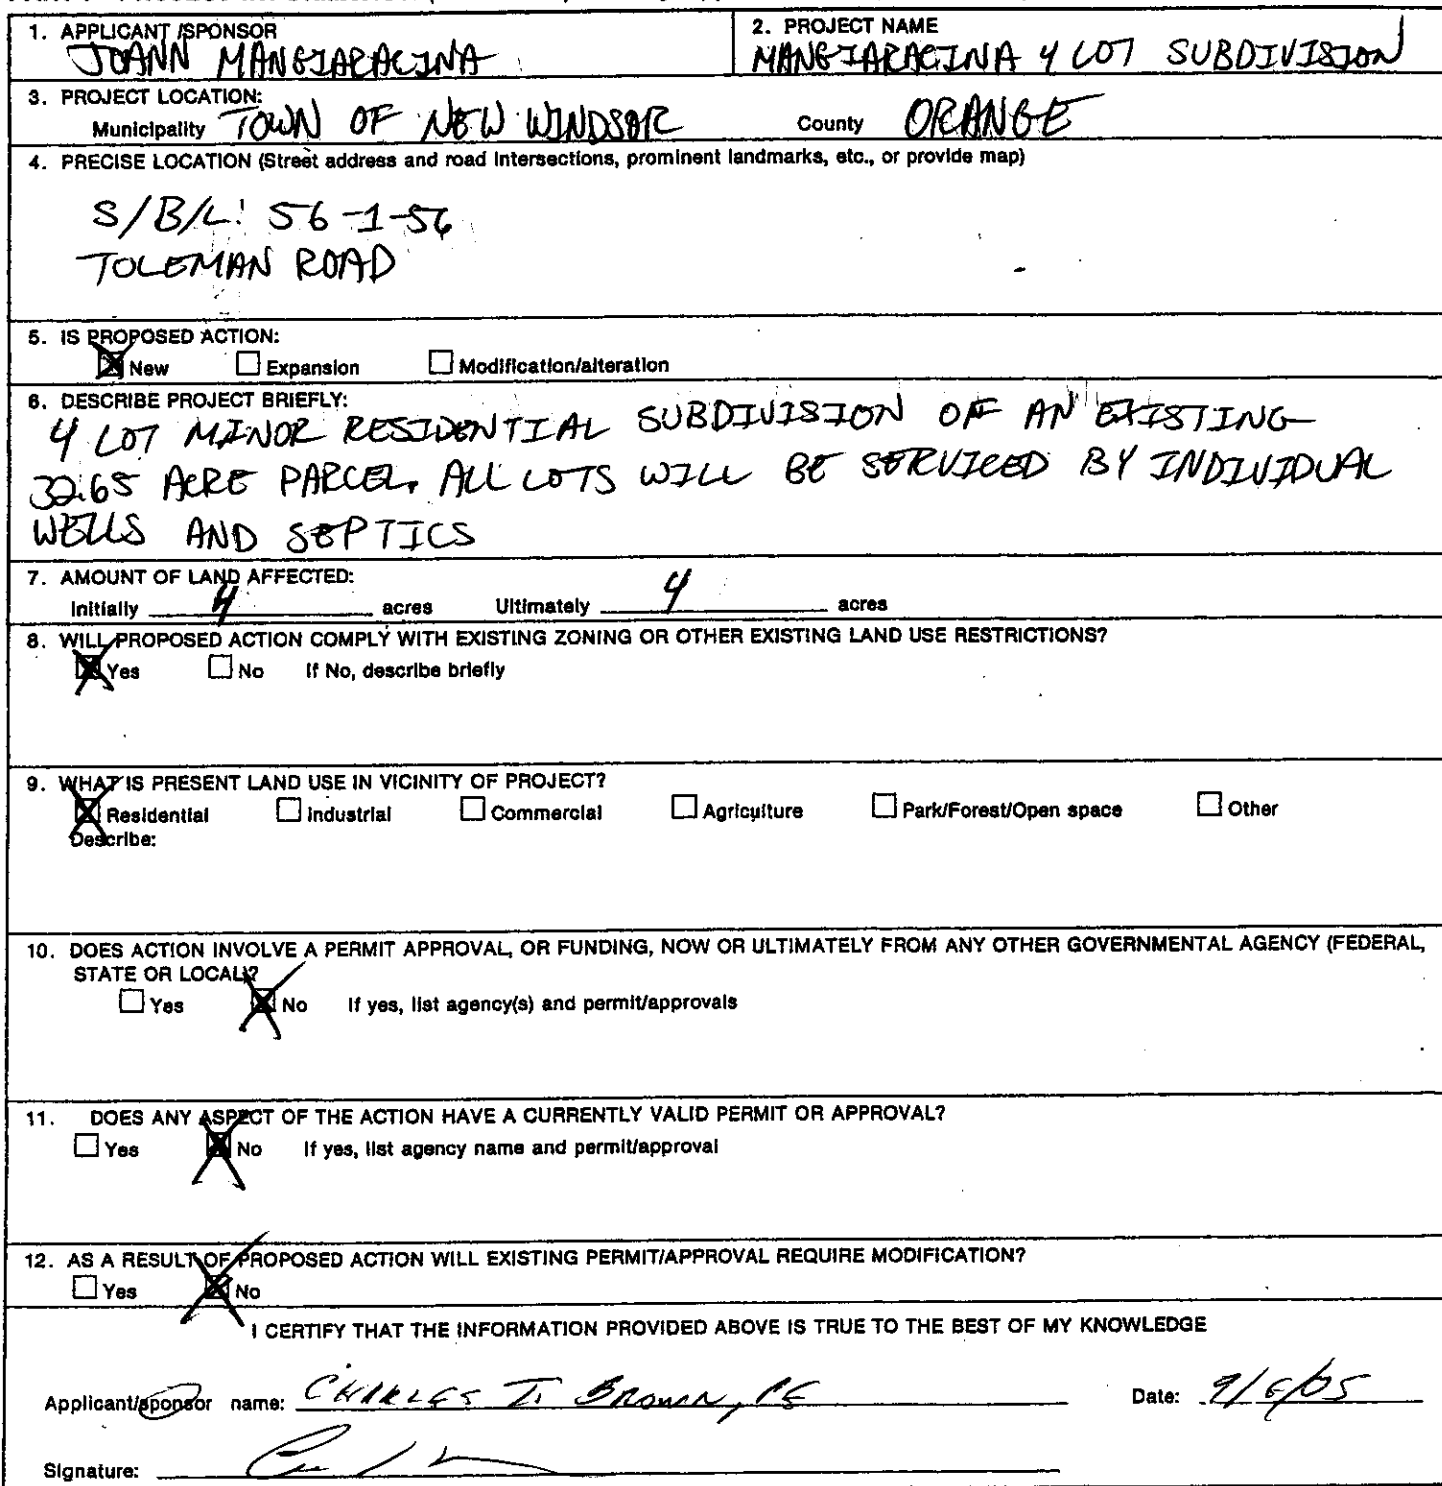 1. APPLICANT /SPONSOR
JOANN MANGIARACINA
2. PROJECT NAME
MANGIARACINA 4 LOT SUBDIVISION
3. PROJECT LOCATION:
Municipality TOWN OF NEW WINDSOR County ORANGE
4. PRECISE LOCATION (Street address and road intersections, prominent landmarks, etc., or provide map)
S/B/L: 56-1-56
TOLEMAN ROAD
5. IS PROPOSED ACTION:
New Expansion Modification/alteration
6. DESCRIBE PROJECT BRIEFLY:
4 LOT MINOR RESIDENTIAL SUBDIVISION OF AN EXISTING
32.65 ACRE PARCEL. ALL LOTS WILL BE SERVICED BY INDIVIDUAL
WELLS AND SEPTICS
7. AMOUNT OF LAND AFFECTED:
Initially 4 acres Ultimately 4 acres
8. WILL PROPOSED ACTION COMPLY WITH EXISTING ZONING OR OTHER EXISTING LAND USE RESTRICTIONS?
Yes No If No, describe briefly
9. WHAT IS PRESENT LAND USE IN VICINITY OF PROJECT?
Residential Industrial Commercial Agriculture Park/Forest/Open space Other
Describe:
10. DOES ACTION INVOLVE A PERMIT APPROVAL, OR FUNDING, NOW OR ULTIMATELY FROM ANY OTHER GOVERNMENTAL AGENCY (FEDERAL,
STATE OR LOCAL)?
Yes No If yes, list agency(s) and permit/approvals
11. DOES ANY ASPECT OF THE ACTION HAVE A CURRENTLY VALID PERMIT OR APPROVAL?
Yes No If yes, list agency name and permit/approval
12. AS A RESULT OF PROPOSED ACTION WILL EXISTING PERMIT/APPROVAL REQUIRE MODIFICATION?
Yes No
I CERTIFY THAT THE INFORMATION PROVIDED ABOVE IS TRUE TO THE BEST OF MY KNOWLEDGE
Applicant/sponsor name: CHARLES T. BROWN, PE Date: 9/6/05
Signature: